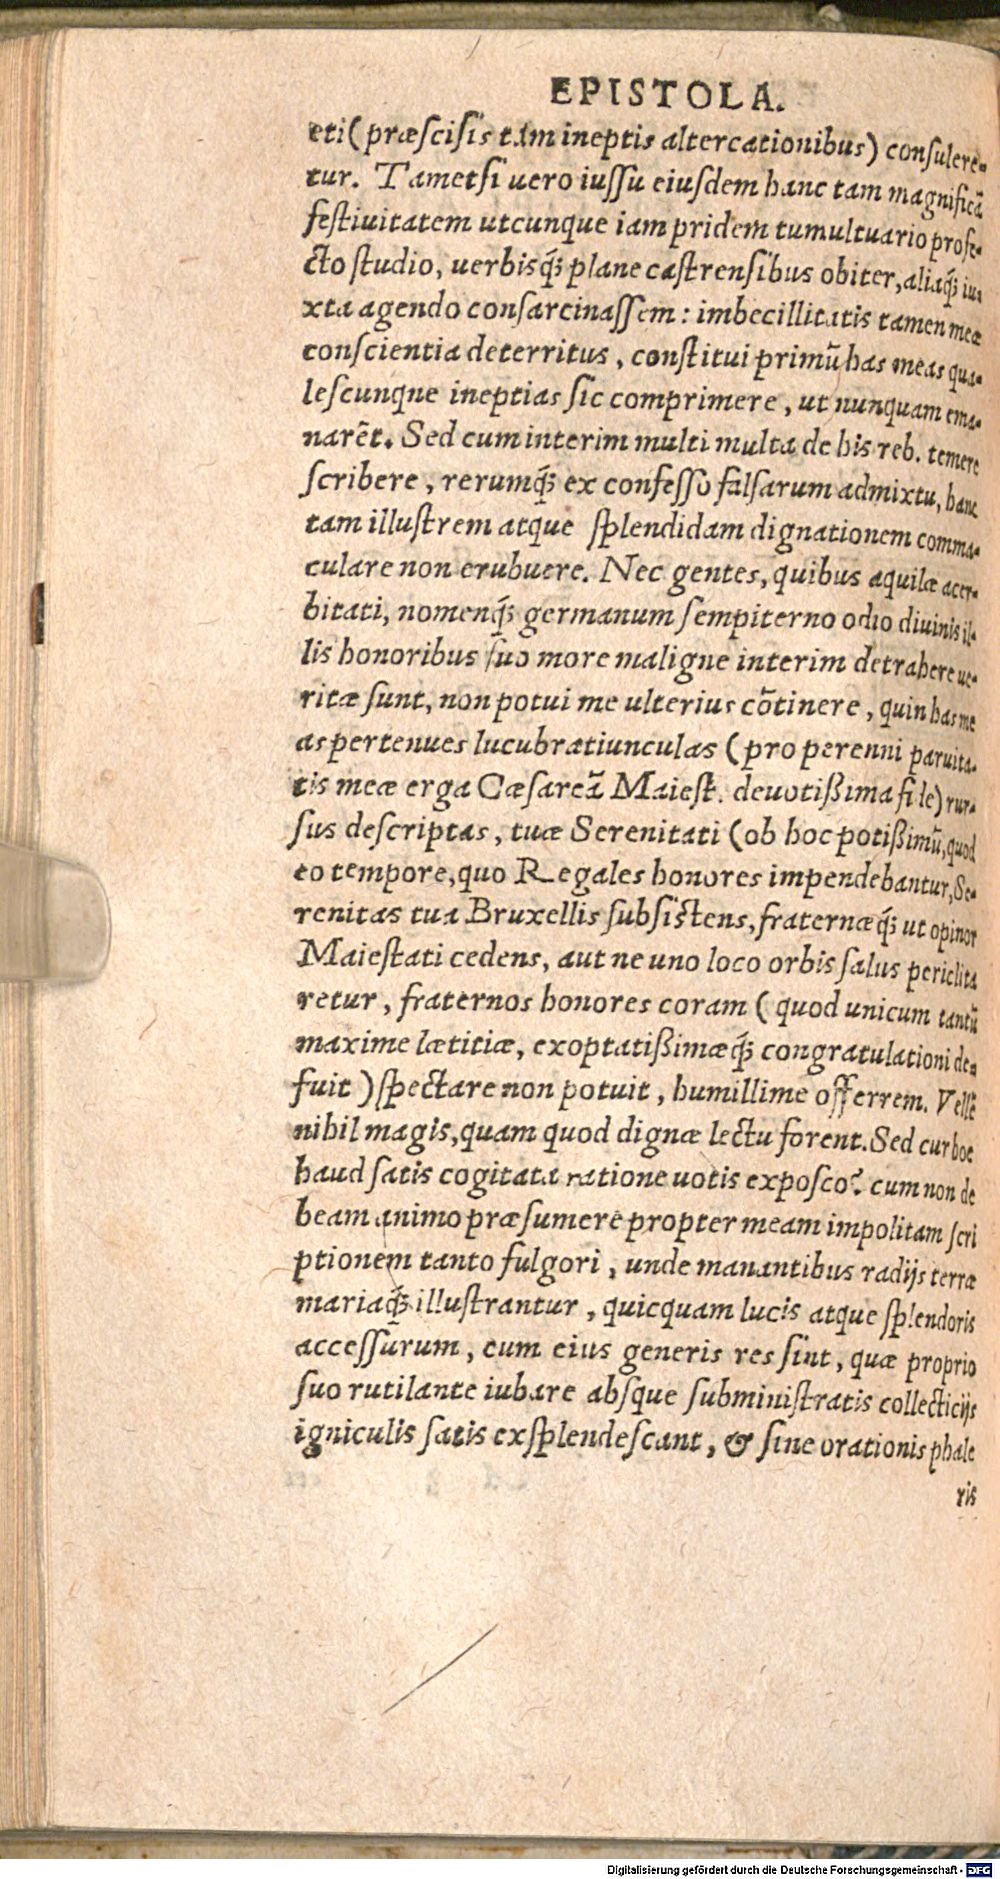 EPISTOLA.
eti (præſciſis tam ineptis altercationibus) conſulere-
tur. Tametſi uero iuſſu eiuſdem hanc tam magnificā
feſtiuitatem utcunque iam pridem tumultuario profe-
cto ſtudio, uerbisq́; plane caſtrenſibus obiter, aliaq́; iu-
xta agendo conſarcinaſſem: imbecillitatis tamen meæ
conſcientia deterritus, conſtitui primū has meas qua-
leſcunque ineptias ſic comprimere, ut nunquam ema-
narēt. Sed cum interim multi multa de his reb. temere
ſcribere, rerumq́; ex confeſſo falſarum admixtu, hanc
tam illuſtrem atque ſplendidam dignationem comma-
culare non erubuere. Nec gentes, quibus aquilæ acer-
bitati, nomenq́; germanum ſempiterno odio diuinis il-
lis honoribus ſuo more maligne interim detrahere ue-
ritæ ſunt, non potui me ulterius cōtinere, quin has me
as pertenues lucubratiunculas (pro perenni paruita-
tis meæ erga Cæſareā Maieſt. deuotißima fide) rur-
ſus deſcriptas, tuæ Serenitati (ob hoc potißimū, quod
eo tempore, quo Regales honores impendebantur, Se-
renitas tua Bruxellis ſubſiſtens, fraternæq́; ut opinor
Maieſtati cedens, aut ne uno loco orbis ſalus periclita
retur, fraternos honores coram (quod unicum tantū
maxime lætitiæ, exoptatißimæq́; congratulationi de-
fuit) ſpectare non potuit, humillime offerrem. Vellē
nihil magis, quam quod dignæ lectu forent. Sed cur hoc
haud ſatis cogitata ratione uotis expoſco? cum non de
beam animo præſumere propter meam impolitam ſcri
ptionem tanto fulgori, unde manantibus radijs terræ
mariaq́; illuſtrantur, quicquam lucis atque ſplendoris
acceſſurum, cum eius generis res ſint, quæ proprio
ſuo rutilante iubare abſque ſubminiſtratis collecticijs
igniculis ſatis exſplendeſcant, & ſine orationis phale
ris
Digitalisierung gefördert durch die Deutsche Forschungsgemeinschaft - DFG